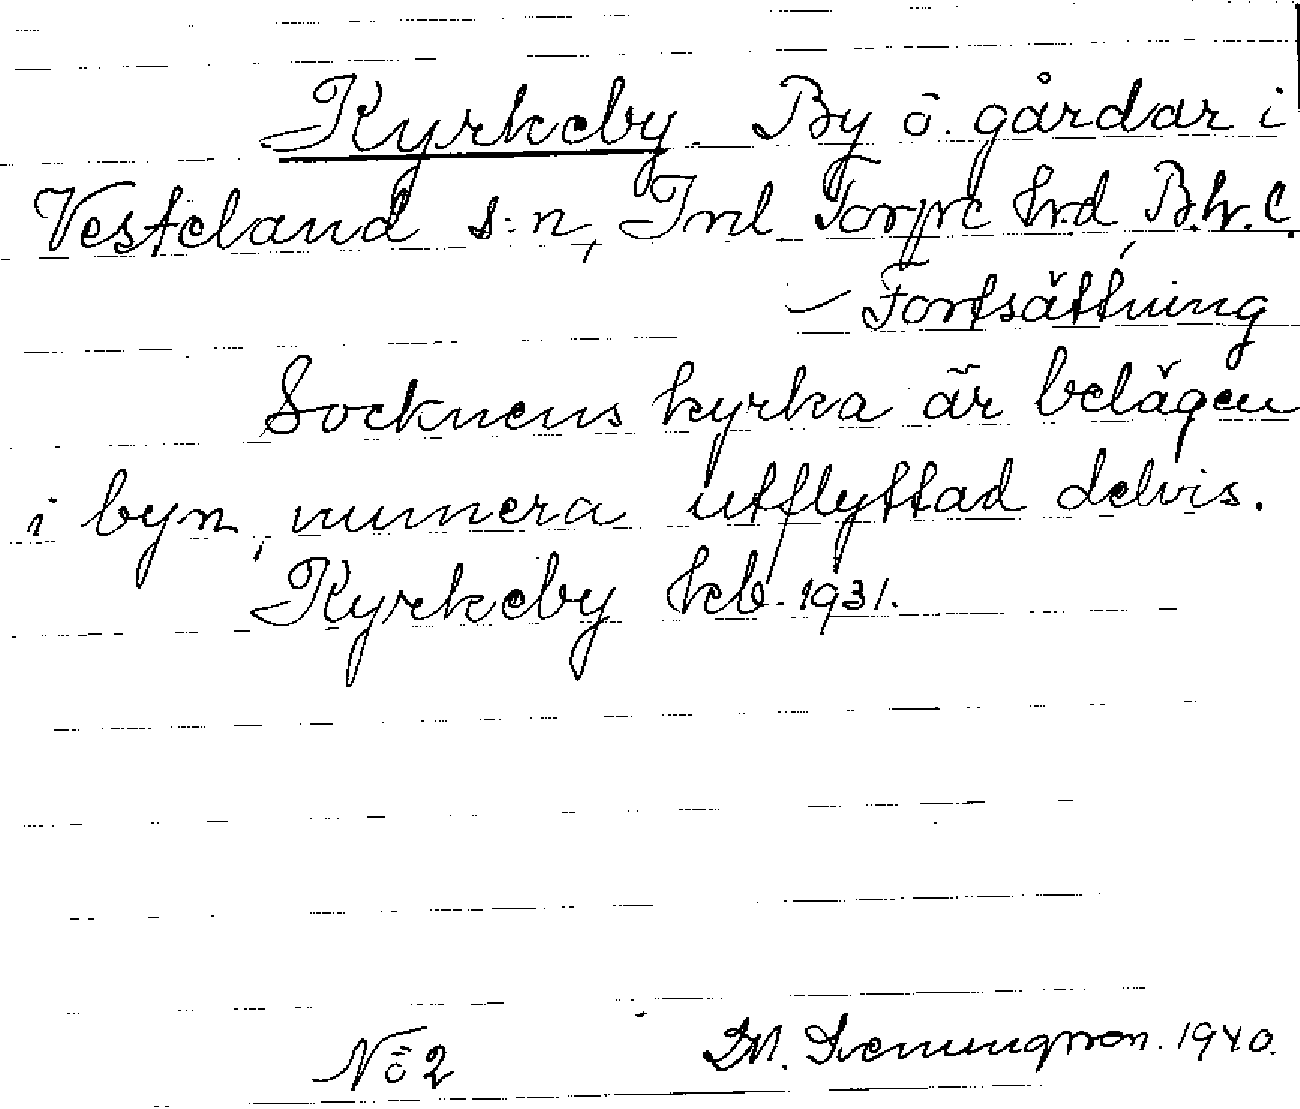 Kyrkeby. By o. gårdar i
Vesteland s:n, Inl. Torpe hrd, B.h.C.
— Fortsättning
Socknens kyrka är belägen
i byn, numera utflyttad delvis.
Kyrkeby kb. 1931.
No 2 Svenungsson. 1940.